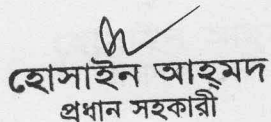 হোসাইন আহ্‌মদ
প্রধান সহকারী